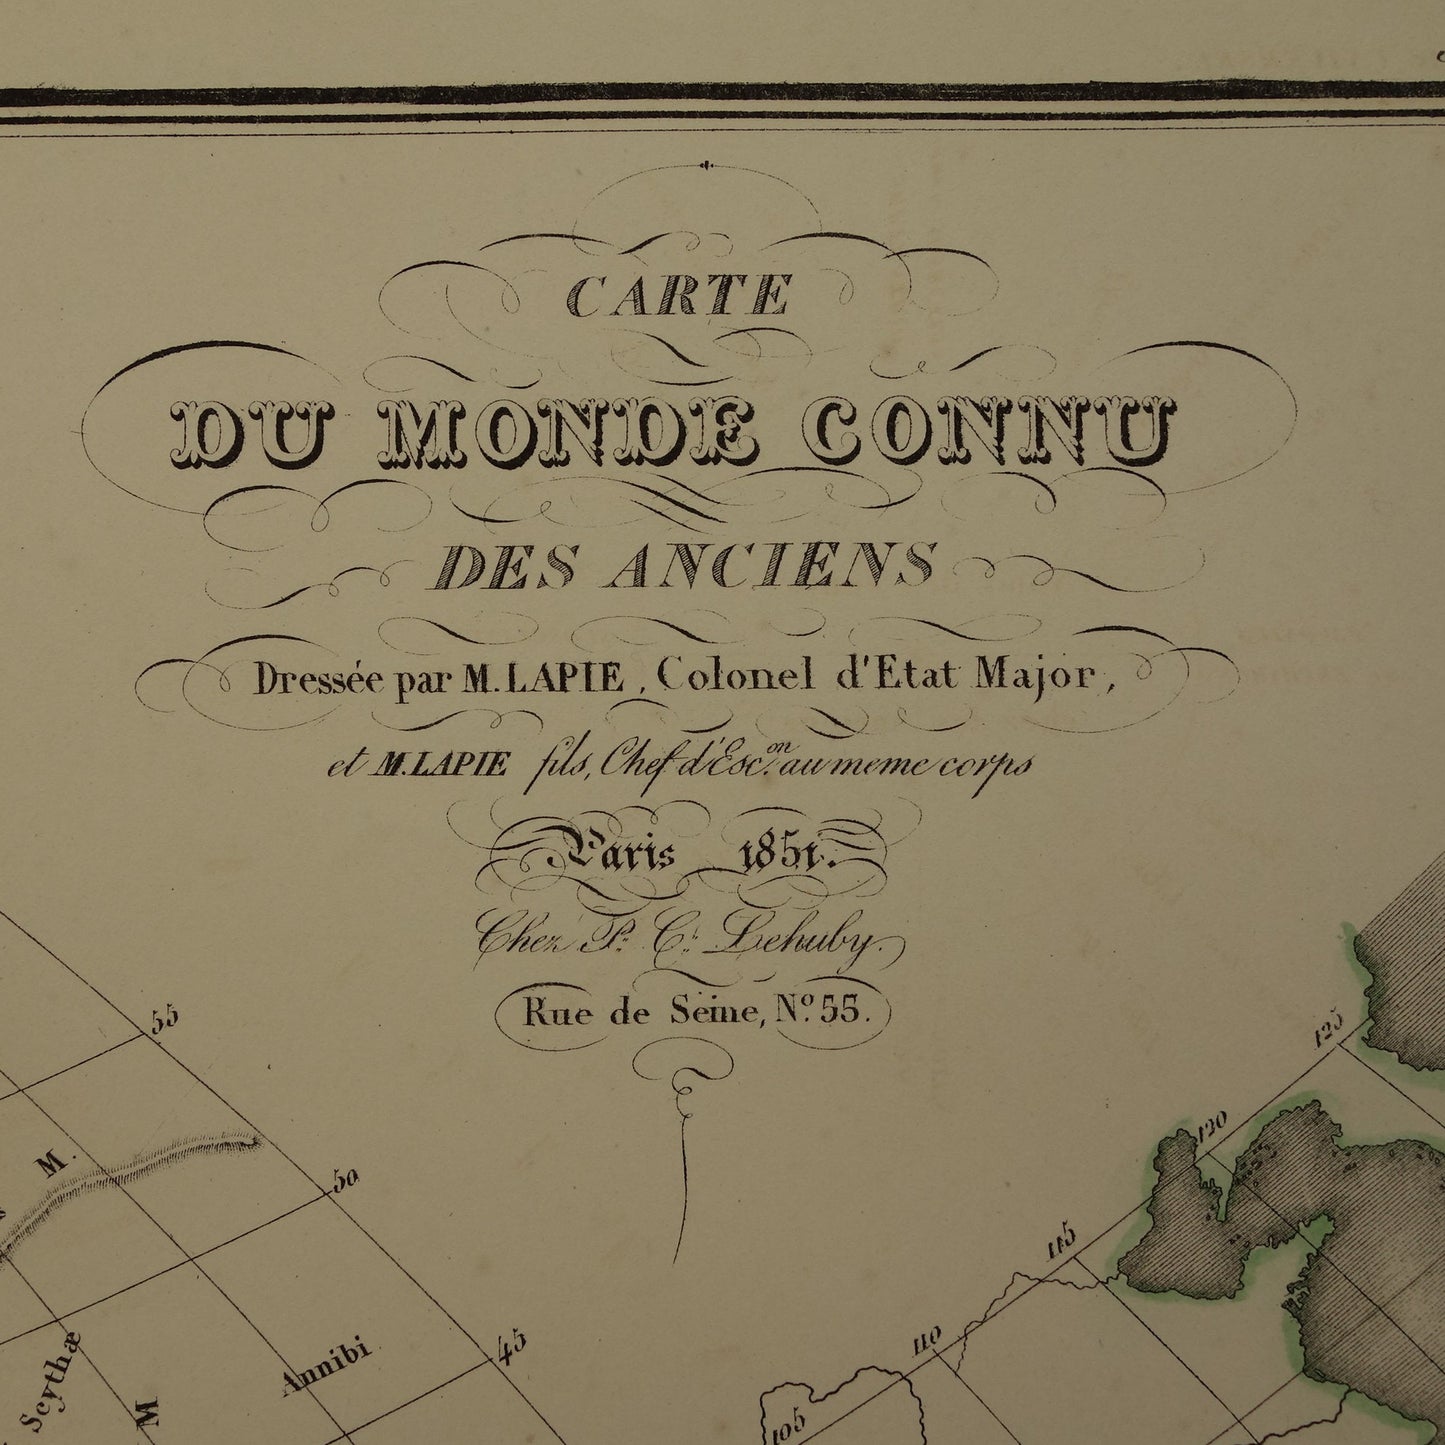 CARTE
DU MONDE CONNU
DES ANCIENS
Dressée par M. LAPIE, Colonel d'Etat Major,
et M. LAPIE fils, Chef d'Esc.on au meme corps
Paris 1851.
Chez P. C. Lehuby.
Rue de Seine, No. 55.
55
125
120
M.
50
115
110
45
Annibi
Scythæ
M
105